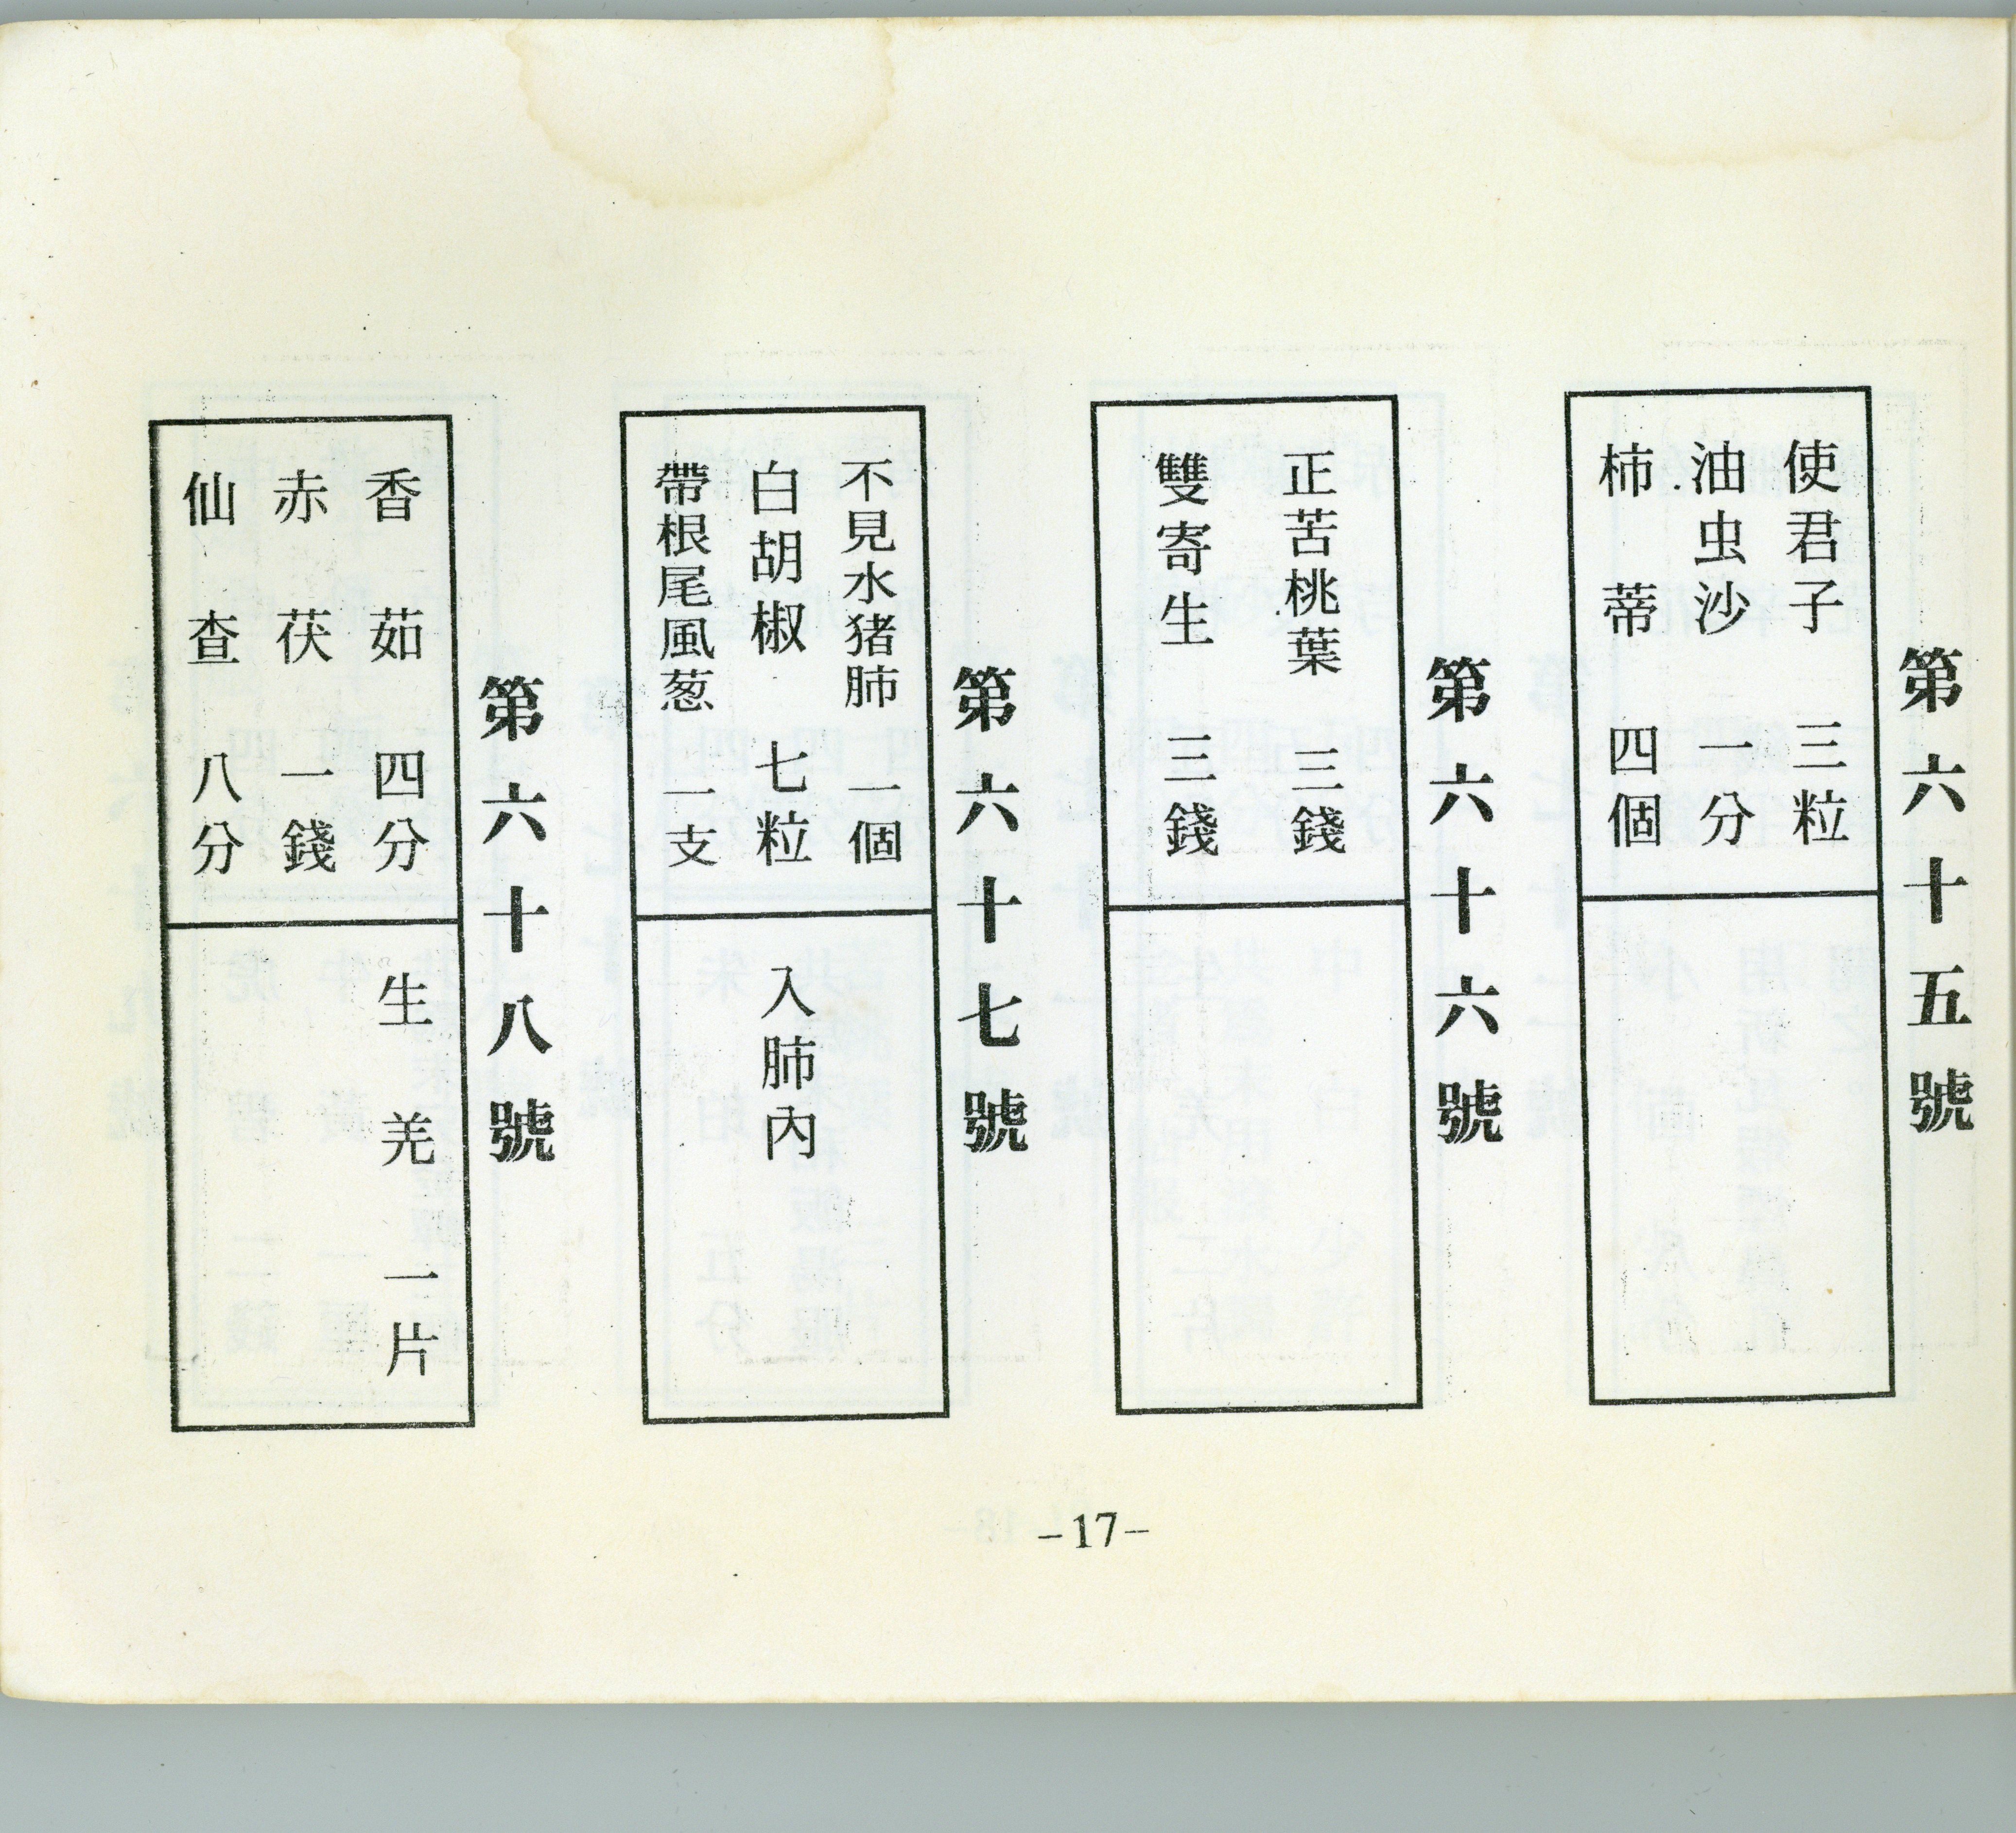 第六十五號
使君子 三粒
油虫沙 一分
柿蒂 四個
第六十六號
正苦桃葉 三錢
雙寄生 三錢
第六十七號
不見水猪肺 一個
白胡椒 七粒
帶根尾風葱 一支
入肺內
第六十八號
香茹 四分
赤茯 一錢
仙查 八分
生羌 一片
-17-